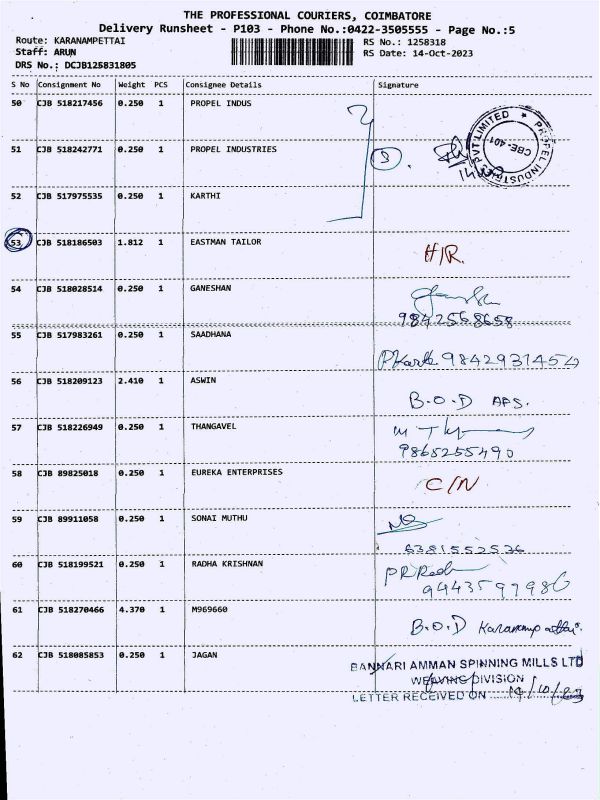 THE PROFESSIONAL COURIERS, COIMBATORE
Delivery Runsheet - P103 - Phone No.:0422-3505555 - Page No.:5
Route: KARANAMPETTAI RS No.: 1258318
Staff: ARUN RS Date: 14-Oct-2023
DRS No.: DCJB125831805
S No Consignment No Weight PCS Consignee Details Signature
50 CJB 518217456 0.250 1 PROPEL INDUS
PROPEL INDUSTRIES PVT LIMITED
CBE-401
51 CJB 518242771 0.250 1 PROPEL INDUSTRIES 3.
52 CJB 517975535 0.250 1 KARTHI
53 CJB 518186503 1.812 1 EASTMAN TAILOR H/R.
54 CJB 518028514 0.250 1 GANESHAN
9842568658
55 CJB 517983261 0.250 1 SAADHANA
9842931454
56 CJB 518209123 2.410 1 ASWIN
B.O.D APS.
57 CJB 518226949 0.250 1 THANGAVEL
9865255490
58 CJB 89825018 0.250 1 EUREKA ENTERPRISES C/N
59 CJB 89911058 0.250 1 SONAI MUTHU
6381552536
60 CJB 518199521 0.250 1 RADHA KRISHNAN
9443597986
61 CJB 518270466 4.370 1 M969660
B.O.D
62 CJB 518085853 0.250 1 JAGAN
BANNARI AMMAN SPINNING MILLS LTD
WEAVING DIVISION
LETTER RECEIVED ON 14/10/23